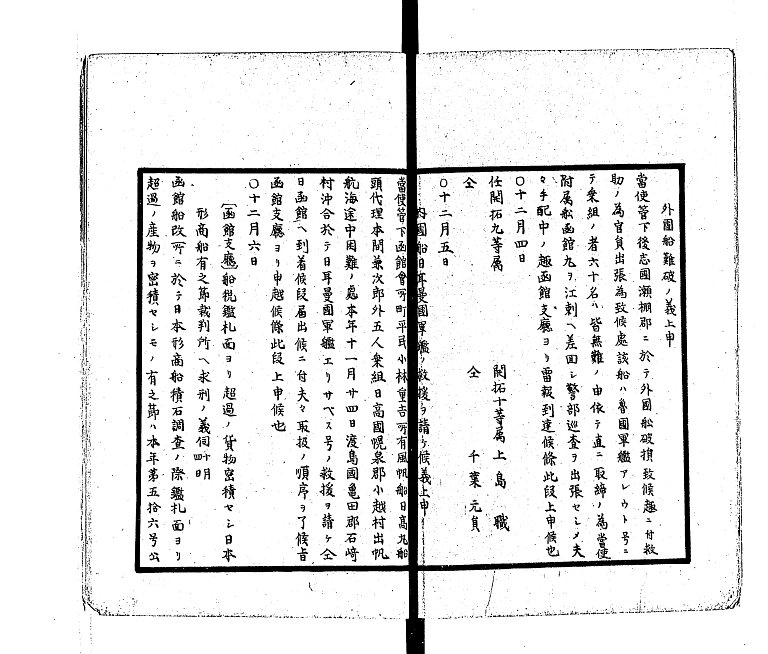 外國船難破ノ義上申
當使管下後志國瀬棚郡ニ於テ外國舩破損致候趣ニ付救
助ノ為官員出張為致候處該船ハ魯國軍艦アレウト号ニ
テ乗組ノ者六十名ハ皆無難ノ由依テ直ニ取締ノ為當使
附属舩函館丸ヲ江刺ヘ差回シ警部巡査ヲ出張セシメ夫
々手配中ノ趣函館支廳ヨリ電報到達候條此段上申候也
〇十二月四日
任開拓九等属 開拓十等属 上島 職
仝 仝 千葉元貞
〇十二月五日
内國船日耳曼國軍艦ノ救援ヲ請ケ候義上申
當使管下函館會所町平民小林重吉所有風帆船日高丸船
頭代理本間兼次郎外五人乗組日高國幌泉郡小越村出帆
航海途中困難ノ處本年十一月廿四日渡島國亀田郡石崎
村沖合於テ日耳曼國軍艦エリサベス号ノ救援ヲ請ケ仝
日函館ヘ到着候段届出候ニ付夫々取扱ノ順序ヲ了候旨
函館支廳ヨリ申越候條此段上申候也
〇十二月六日
〔函館支廳〕船税鑑札面ヨリ超過ノ貨物密積セシ日本
形商船有之節裁判所ヘ求刑ノ義伺 十月四日
函館船改所ニ於テ日本形商船積石調査ノ際鑑札面ヨリ
超過ノ産物ヲ密積セシモノ有之節ハ本年第五拾六号公